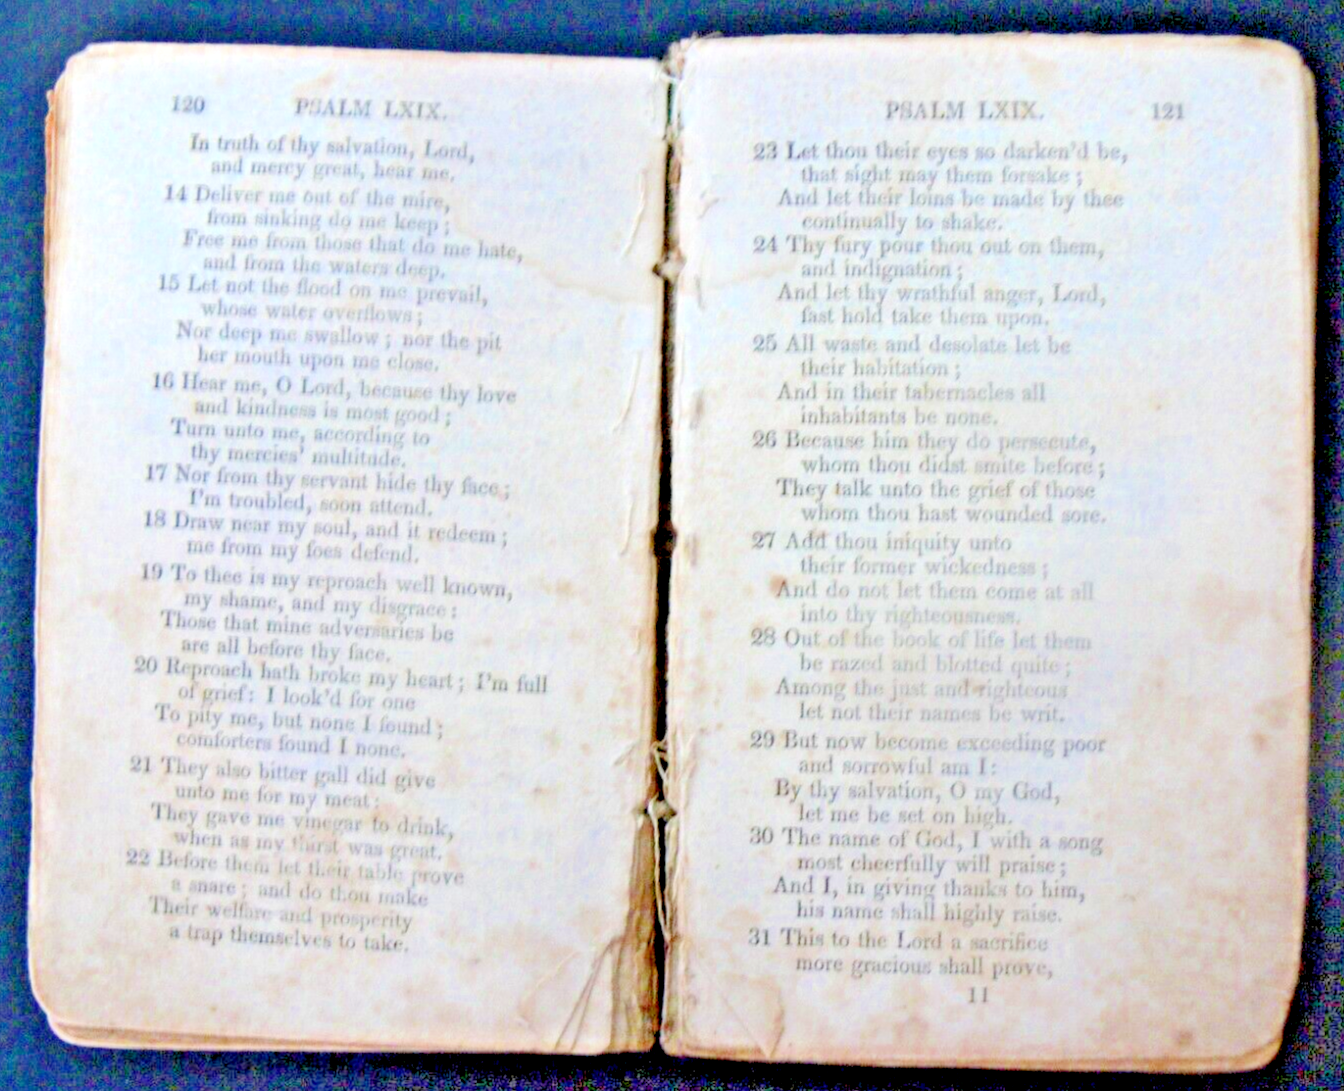 120 PSALM LXIX.
In truth of thy salvation, Lord,
and mercy great, hear me.
14 Deliver me out of the mire,
from sinking do me keep;
Free me from those that do me hate,
and from the waters deep.
15 Let not the flood on me prevail,
whose water overflows;
Nor deep me swallow; nor the pit
her mouth upon me close.
16 Hear me, O Lord, because thy love
and kindness is most good;
Turn unto me, according to
thy mercies' multitude.
17 Nor from thy servant hide thy face;
I'm troubled, soon attend.
18 Draw near my soul, and it redeem;
me from my foes defend.
19 To thee is my reproach well known,
my shame, and my disgrace:
Those that mine adversaries be
are all before thy face.
20 Reproach hath broke my heart; I'm full
of grief: I look'd for one
To pity me, but none I found;
comforters found I none.
21 They also bitter gall did give
unto me for my meat:
They gave me vinegar to drink,
when as my thirst was great.
22 Before them let their table prove
a snare; and do thou make
Their welfare and prosperity
a trap themselves to take.
PSALM LXIX. 121
23 Let thou their eyes so darken'd be,
that sight may them forsake;
And let their loins be made by thee
continually to shake.
24 Thy fury pour thou out on them,
and indignation;
And let thy wrathful anger, Lord,
fast hold take them upon.
25 All waste and desolate let be
their habitation;
And in their tabernacles all
inhabitants be none.
26 Because him they do persecute,
whom thou didst smite before;
They talk unto the grief of those
whom thou hast wounded sore.
27 Add thou iniquity unto
their former wickedness;
And do not let them come at all
into thy righteousness.
28 Out of the book of life let them
be razed and blotted quite;
Among the just and righteous
let not their names be writ.
29 But now become exceeding poor
and sorrowful am I:
By thy salvation, O my God,
let me be set on high.
30 The name of God, I with a song
most cheerfully will praise;
And I, in giving thanks to him,
his name shall highly raise.
31 This to the Lord a sacrifice
more gracious shall prove,
11